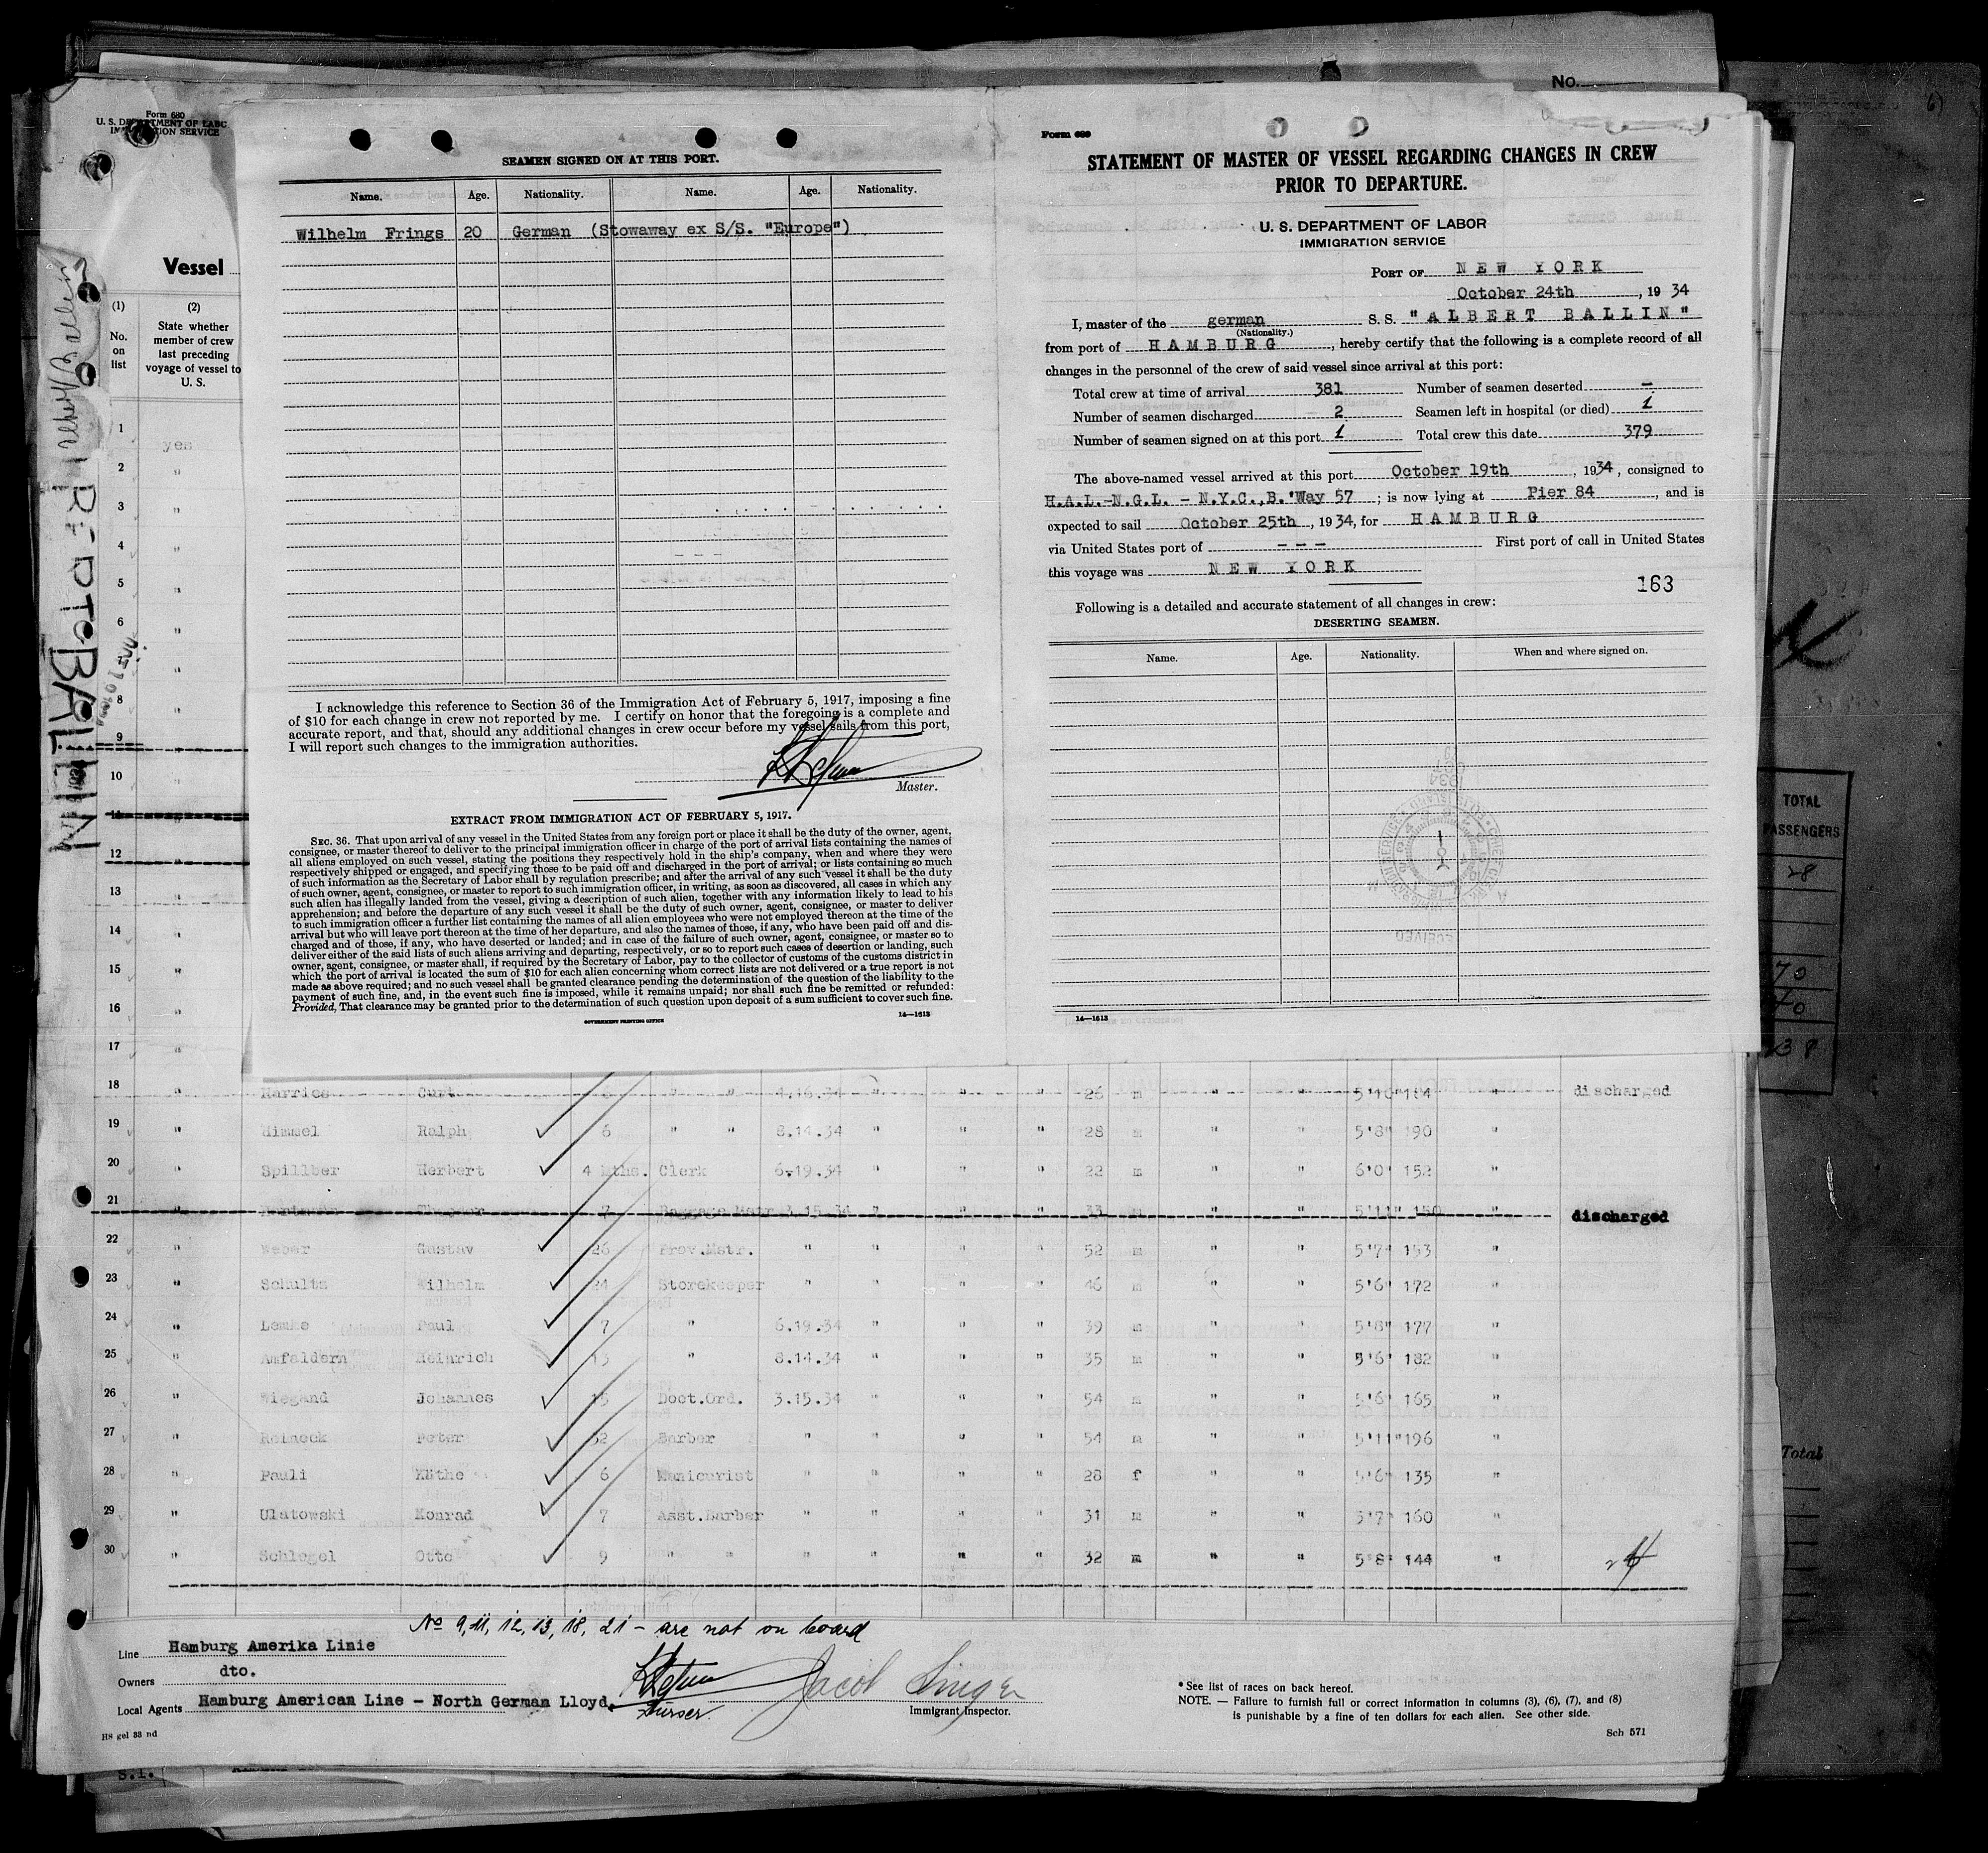 No.
Form 680
U. S. DEPARTMENT OF LABO
IMMIGRATION SERVICE
Vessel
(1)
No. on list
(2)
State whether member of crew last preceding voyage of vessel to U. S.
1 yes
2 "
3 "
4 "
5 "
6 "
"
8 "
9 "
10 "
11 "
12 "
13 "
14 "
15 "
16 "
17 "
SEAMEN SIGNED ON AT THIS PORT.
Name. Age. Nationality. Name. Age. Nationality.
Wilhelm Frings 20 German (Stowaway ex S/S. "Europe")
I acknowledge this reference to Section 36 of the Immigration Act of February 5, 1917, imposing a fine
of $10 for each change in crew not reported by me. I certify on honor that the foregoing is a complete and
accurate report, and that, should any additional changes in crew occur before my vessel sails from this port,
I will report such changes to the immigration authorities.
Master.
EXTRACT FROM IMMIGRATION ACT OF FEBRUARY 5, 1917.
SEC. 36. That upon arrival of any vessel in the United States from any foreign port or place it shall be the duty of the owner, agent,
consignee, or master thereof to deliver to the principal immigration officer in charge of the port of arrival lists containing the names of
all aliens employed on such vessel, stating the positions they respectively hold in the ship's company, when and where they were
respectively shipped or engaged, and specifying those to be paid off and discharged in the port of arrival; or lists containing so much
of such information as the Secretary of Labor shall by regulation prescribe; and after the arrival of any such vessel it shall be the duty
of such owner, agent, consignee, or master to report to such immigration officer, in writing, as soon as discovered, all cases in which any
such alien has illegally landed from the vessel, giving a description of such alien, together with any information likely to lead to his
apprehension; and before the departure of any such vessel it shall be the duty of such owner, agent, consignee, or master to deliver
to such immigration officer a further list containing the names of all alien employees who were not employed thereon at the time of the
arrival but who will leave port thereon at the time of her departure, and also the names of those, if any, who have been paid off and dis-
charged and of those, if any, who have deserted or landed; and in case of the failure of such owner, agent, consignee, or master so to
deliver either of the said lists of such aliens arriving and departing, respectively, or so to report such cases of desertion or landing, such
owner, agent, consignee, or master shall, if required by the Secretary of Labor, pay to the collector of customs of the customs district in
which the port of arrival is located the sum of $10 for each alien concerning whom correct lists are not delivered or a true report is not
made as above required; and no such vessel shall be granted clearance pending the determination of the question of the liability to the
payment of such fine, and, in the event such fine is imposed, while it remains unpaid; nor shall such fine be remitted or refunded:
Provided, That clearance may be granted prior to the determination of such question upon deposit of a sum sufficient to cover such fine.
GOVERNMENT PRINTING OFFICE 14—1613
Form 689
STATEMENT OF MASTER OF VESSEL REGARDING CHANGES IN CREW
PRIOR TO DEPARTURE.
U. S. DEPARTMENT OF LABOR
IMMIGRATION SERVICE
PORT OF NEW YORK
October 24th, 1934
I, master of the german S. S. "ALBERT BALLIN"
(Nationality.)
from port of HAMBURG, hereby certify that the following is a complete record of all
changes in the personnel of the crew of said vessel since arrival at this port:
Total crew at time of arrival 381 Number of seamen deserted –
Number of seamen discharged 2 Seamen left in hospital (or died) 1
Number of seamen signed on at this port 1 Total crew this date 379
The above-named vessel arrived at this port October 19th, 1934, consigned to
H.A.L.-N.G.L. - N.Y.C.,B.'Way 57; is now lying at Pier 84, and is
expected to sail October 25th, 1934, for HAMBURG
via United States port of --- First port of call in United States
this voyage was NEW YORK
163
Following is a detailed and accurate statement of all changes in crew:
DESERTING SEAMEN.
Name. Age. Nationality. When and where signed on.
14—1613
TOTAL
PASSENGERS
28
Total
18 " Harries Curt " " 4.16.34 " " " 26 m " " 5'10" 154 " discharged
19 " Himmel Ralph 6 " " 8.14.34 " " " 28 m " " 5'8" 190 "
20 " Spillber Herbert 4 mths. Clerk 6-19.34 " " " 22 m " " 6'0" 152 "
21 " 7 Baggage Mstr 3.15.34 " " " 33 m " " 5'11" 150 " discharged
22 " Weber Gustav 26 Prov.Mstr. " " " " 52 m " " 5'7" 153 "
23 " Schults Wilhelm 24 Storekeeper " " " " 46 m " " 5'6" 172 "
24 " Lemke Paul 7 " 6.19.34 " " " 39 m " " 5'8" 177 "
25 " Amfaldern Heinrich 13 " 8.14.34 " " " 35 m " " 5'6" 182 "
26 " Wiegand Johannes 15 Doct.Ord. 3.15.34 " " " 54 m " " 5'6" 165 "
27 " Reineck Peter 32 Barber " " " " 54 m " " 5'11" 196 "
28 " Pauli Käthe 6 Manicurist " " " " 28 f " " 5'6" 135 "
29 " Ulatowski Konrad 7 Asst.Barber " " " " 31 m " " 5'7" 160 "
30 " Schlegel Otto 9 " " " " " " 32 m " " 5'8" 144 "
No 9, 11, 12, 13, 18, 21 - are not on board
Line Hamburg Amerika Linie
Owners dto.
Local Agents Hamburg American Line - North German Lloyd.
Purser.
Jacob Singer
Immigrant Inspector.
* See list of races on back hereof.
NOTE. — Failure to furnish full or correct information in columns (3), (6), (7), and (8)
is punishable by a fine of ten dollars for each alien. See other side.
HS gel 33 nd
Sch 571
S.I.